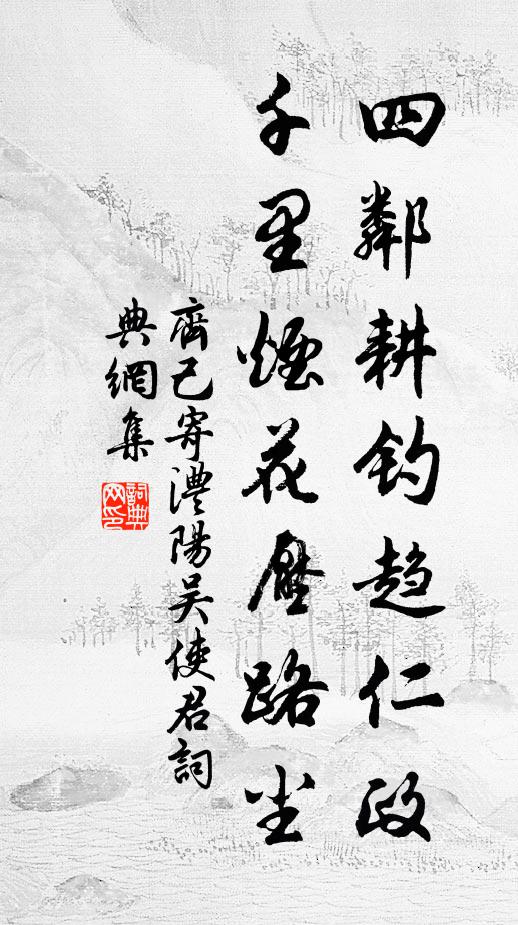 四鄰耕釣趋仁政
千里煙花壓路尘
齊己寄澧陽吴使君詞
典網集
詞典
网印